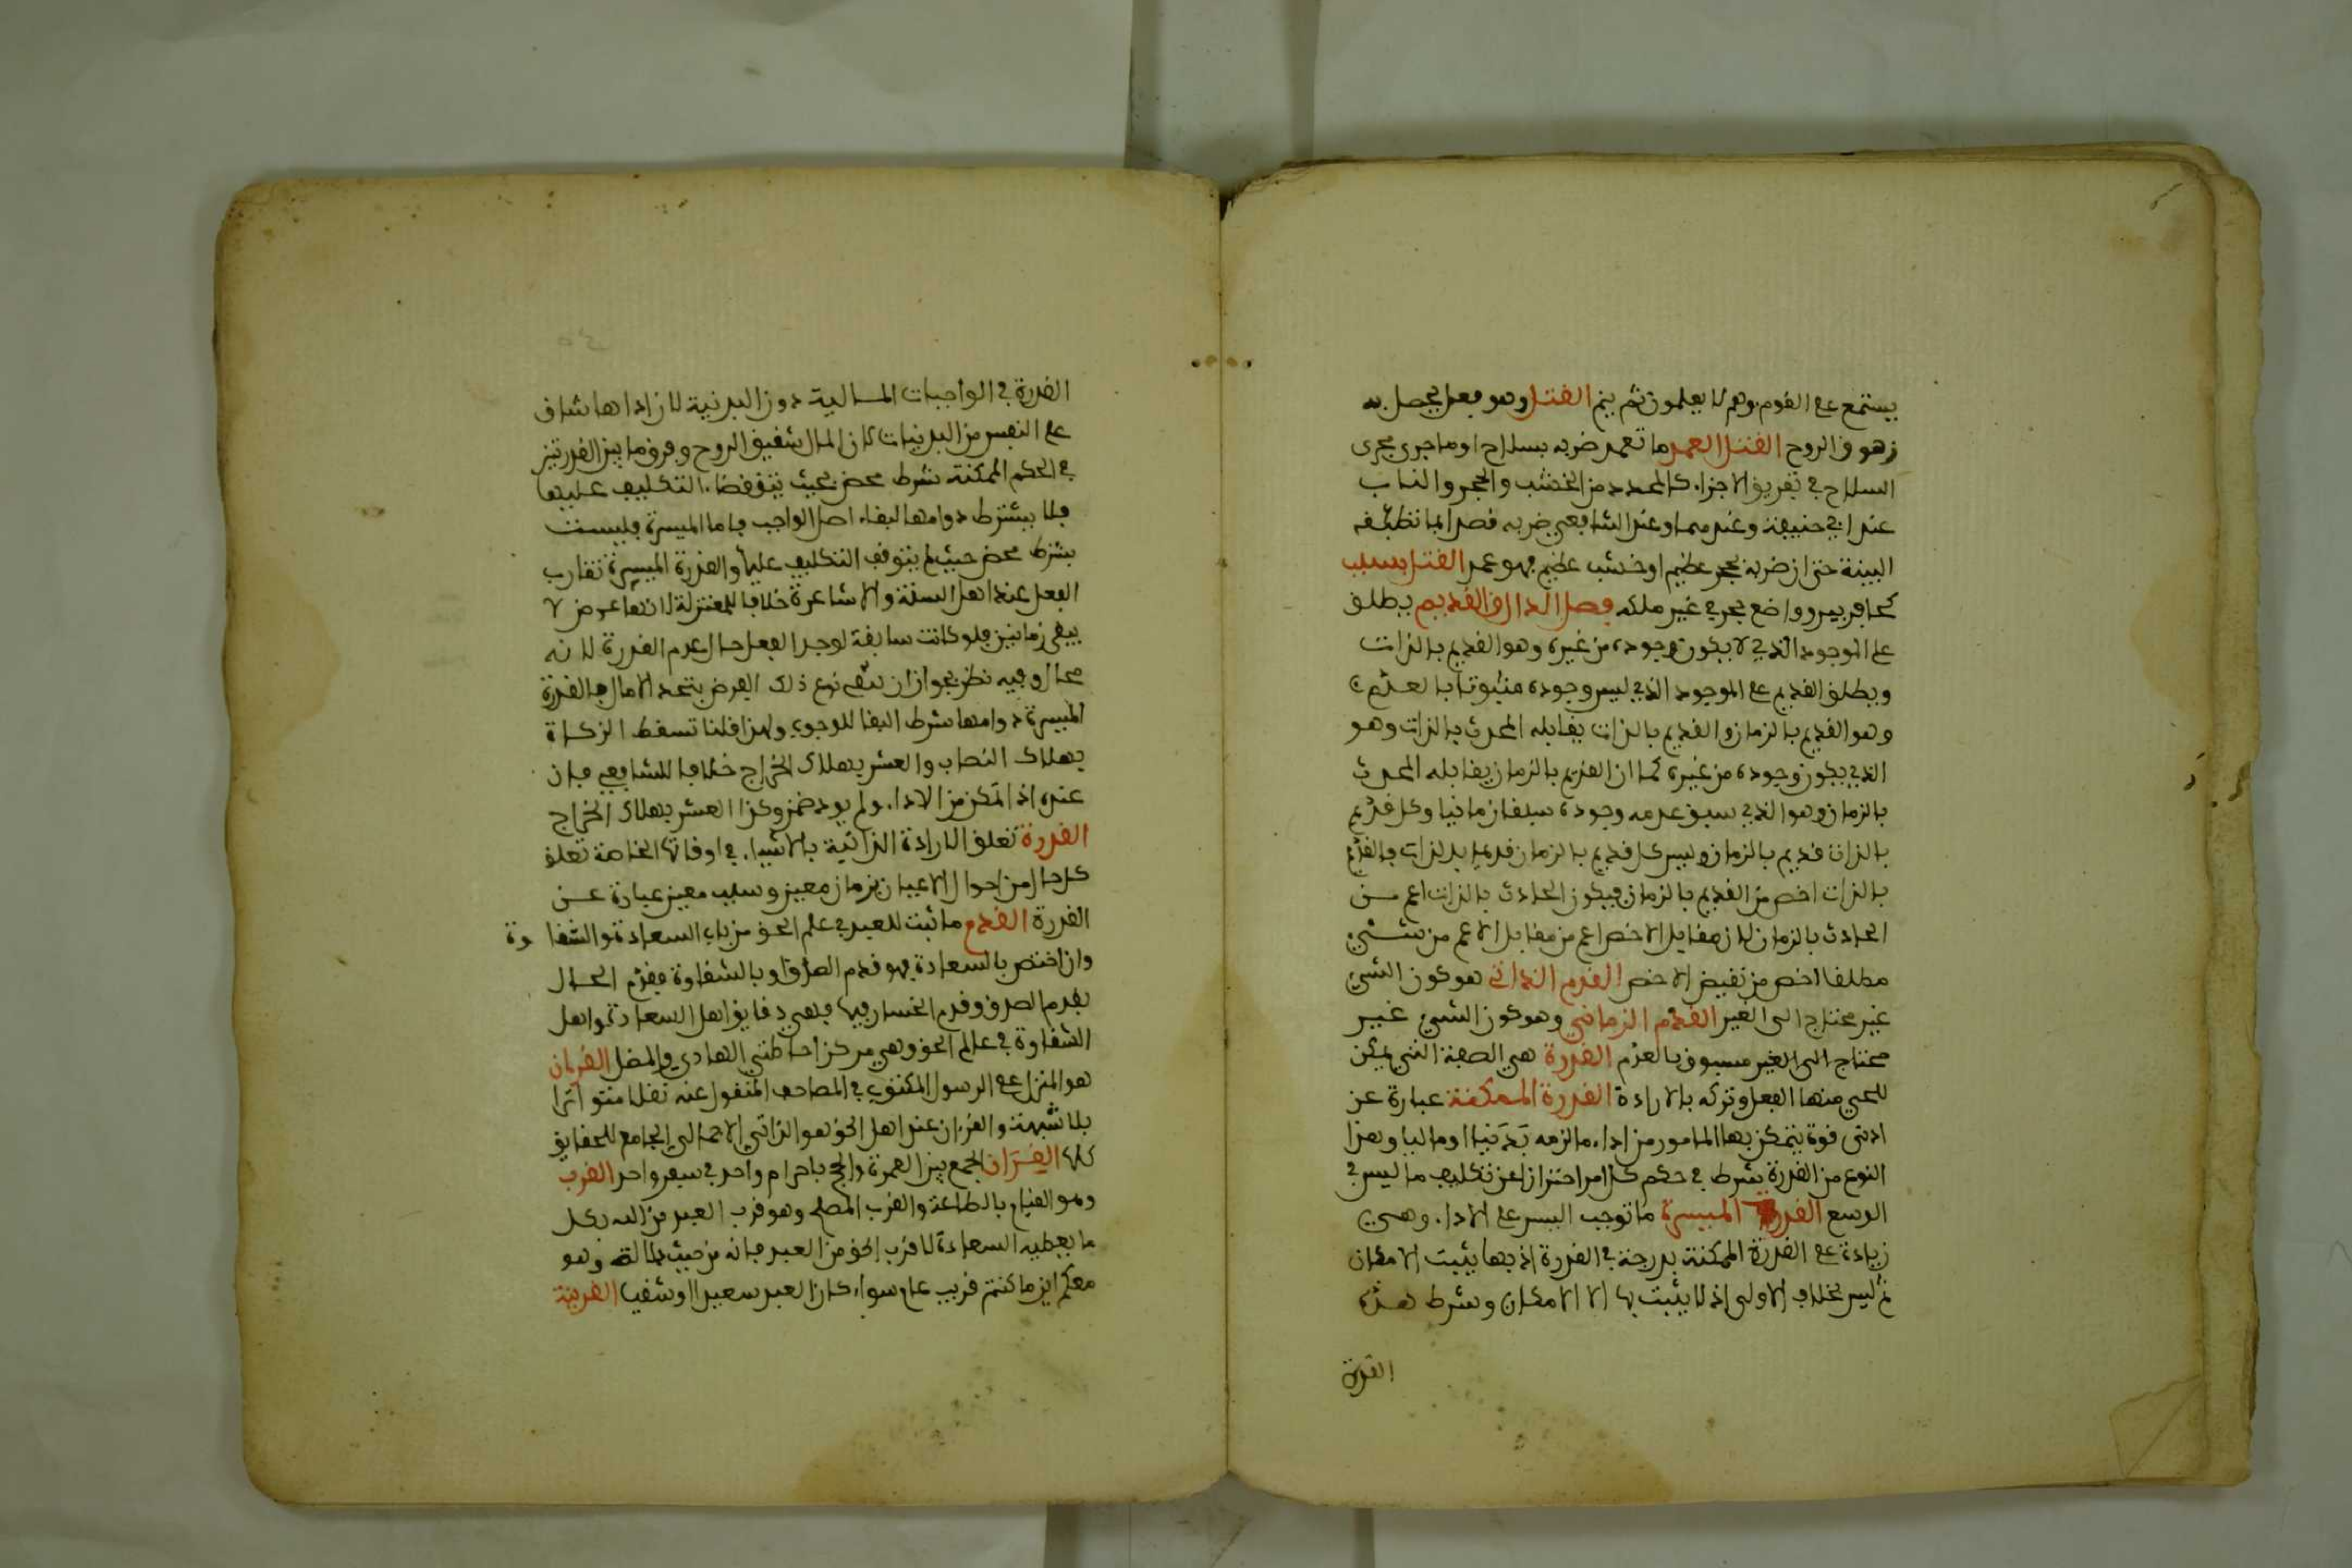 يستمع على القوم وهم لا يعلمون ثم ينم القتل وهو فعل يحصل به
زهوق الروح القتل العمد ما تعمد ضربه بسلاح او ما جرى مجرى
السلاح في تفريق الاجزاء كالمحدد من الخشب والحجر والنار
عند ابي حنيفة وعندهما وعند الشافعي ضربه قصدا بما لا تطيقه
البنية حتى ان ضربه بحجر عظيم او خشب عظيم فهو عمد القتل بسبب
كحافر بير وواضع بحر في غير ملكه فصل الدال القديم يطلق
على الموجود الذي لا يكون وجوده من غيره وهو القديم بالذات
ويطلق القديم على الموجود الذي ليس وجوده مسبوقا بالعدم
وهو القديم بالزمان والقديم بالذات يقابله المحدث بالذات وهو
الذي يكون وجوده من غيره كما ان القديم بالزمان يقابله المحدث
بالزمان وهو الذي سبق عدمه وجوده سبقا زمانيا وكل قديم
بالذات قديم بالزمان وليس كل قديم بالزمان قديما بالذات فالقديم
بالذات اخص من القديم بالزمان فيكون الحادث بالذات اعم من
الحادث بالزمان لان مقابل الاخص اعم من مقابل الاعم من شيء
مطلقا اخص من نقيض الاخص القدم الذاتي هو كون الشيء
غير محتاج الى الغير القدم الزماني وهو كون الشيء غير
محتاج الى الغير مسبوق بالعدم القدرة هي الصفة التي يمكن
للحي منها الفعل وتركه بالارادة القدرة الممكنة عبارة عن
ادنى قوة يتمكن بها المامور من اداء ما لزمه بدنيا او ماليا وهذا
النوع من القدرة شرط في حكم كل امر احترازا عن تكليف ما ليس في
الوسع القدرة الميسرة ما توجب اليسر على الاداء وهي
زيادة على القدرة الممكنة بدرجة في القدرة اذ بها يثبت الامكان
ثم اليسر بخلاف الاولى اذ لا يثبت بها الا الامكان وشرط هذه
القدرة
القدرة في الواجبات المالية دون البدنية لان اداها شاق
على النفس من البدنيات لان المال شقيق الروح وفرق ما بين القدرتين
في الحكم الممكنة شرط محض بحيث يتوقف التكليف عليها
فلا يشترط دوامها لبقاء اصل الواجب فاما الميسرة فليست
بشرط محض حيث لم يتوقف التكليف عليها والقدرة الميسرة تقارب
الفعل عند اهل السنة والاشاعرة خلافا للمعتزلة لانها عرض لا
يبقى زمانين فلو كانت سابقة لوجد الفعل حال عدم القدرة لانه
محال وفيه نظر لجواز ان يبقى نوع ذلك العرض بتجدد الامثال فالقدرة
الميسرة دوامها شرط البقا للوجوب ولهذا قلنا تسقط الزكاة
بهلاك النصاب والعشر بهلاك الخراج خلافا للشافعي فان
عنده اذا تمكن من الاداء ولم يود ضمن وكذا العشر بهلاك الخراج
القدرة تعلق الارادة الذاتية بالاشياء في اوقاتها الخاصة تعلق
كل حال من احوال الاعيان بزمان معين وسبب معين عبارة عن
القدرة القدم ما ثبت للعبد في علم الحق من باب السعادة والشقاوة
وان اختص بالسعادة فهو قدم الصدق او بالشقاوة فقدم الحال
بقدم الصدق وقدم الخسار فيها فهي دقايق اهل السعادة واهل
الشقاوة في عالم الحق وهي مركز احاطتي الهادي والمضل القرءان
هو المنزل على الرسول المكتوب في المصاحف المنقول عنه نقلا متواترا
بلا شبهة والقرءان عند اهل الحق هو الذاتي الاجمالي الجامع للحقايق
كلها القران الجمع بين العمرة والحج باحرام واحد في سفر واحد القرب
وهو القيام بالطاعة والقرب المصطلح وهو قرب العبد من الله بكل
ما يعطيه السعادة لا قرب الحق من العبد فانه من حيث دلالة وهو
معكم اين ما كنتم قريب عام سواء كان العبد سعيدا او شقيا القرينة